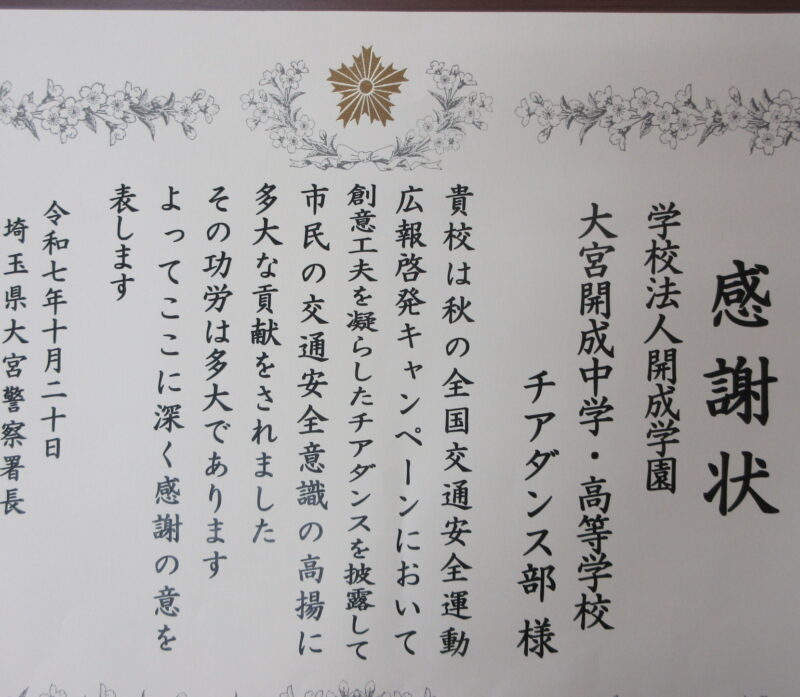 感謝状
学校法人開成学園
大宮開成中学・高等学校
チアダンス部 様
貴校は秋の全国交通安全運動
広報啓発キャンペーンにおいて
創意工夫を凝らしたチアダンスを披露して
市民の交通安全意識の高揚に
多大な貢献をされました
その功労は多大であります
よってここに深く感謝の意を
表します
令和七年十月二十日
埼玉県大宮警察署長